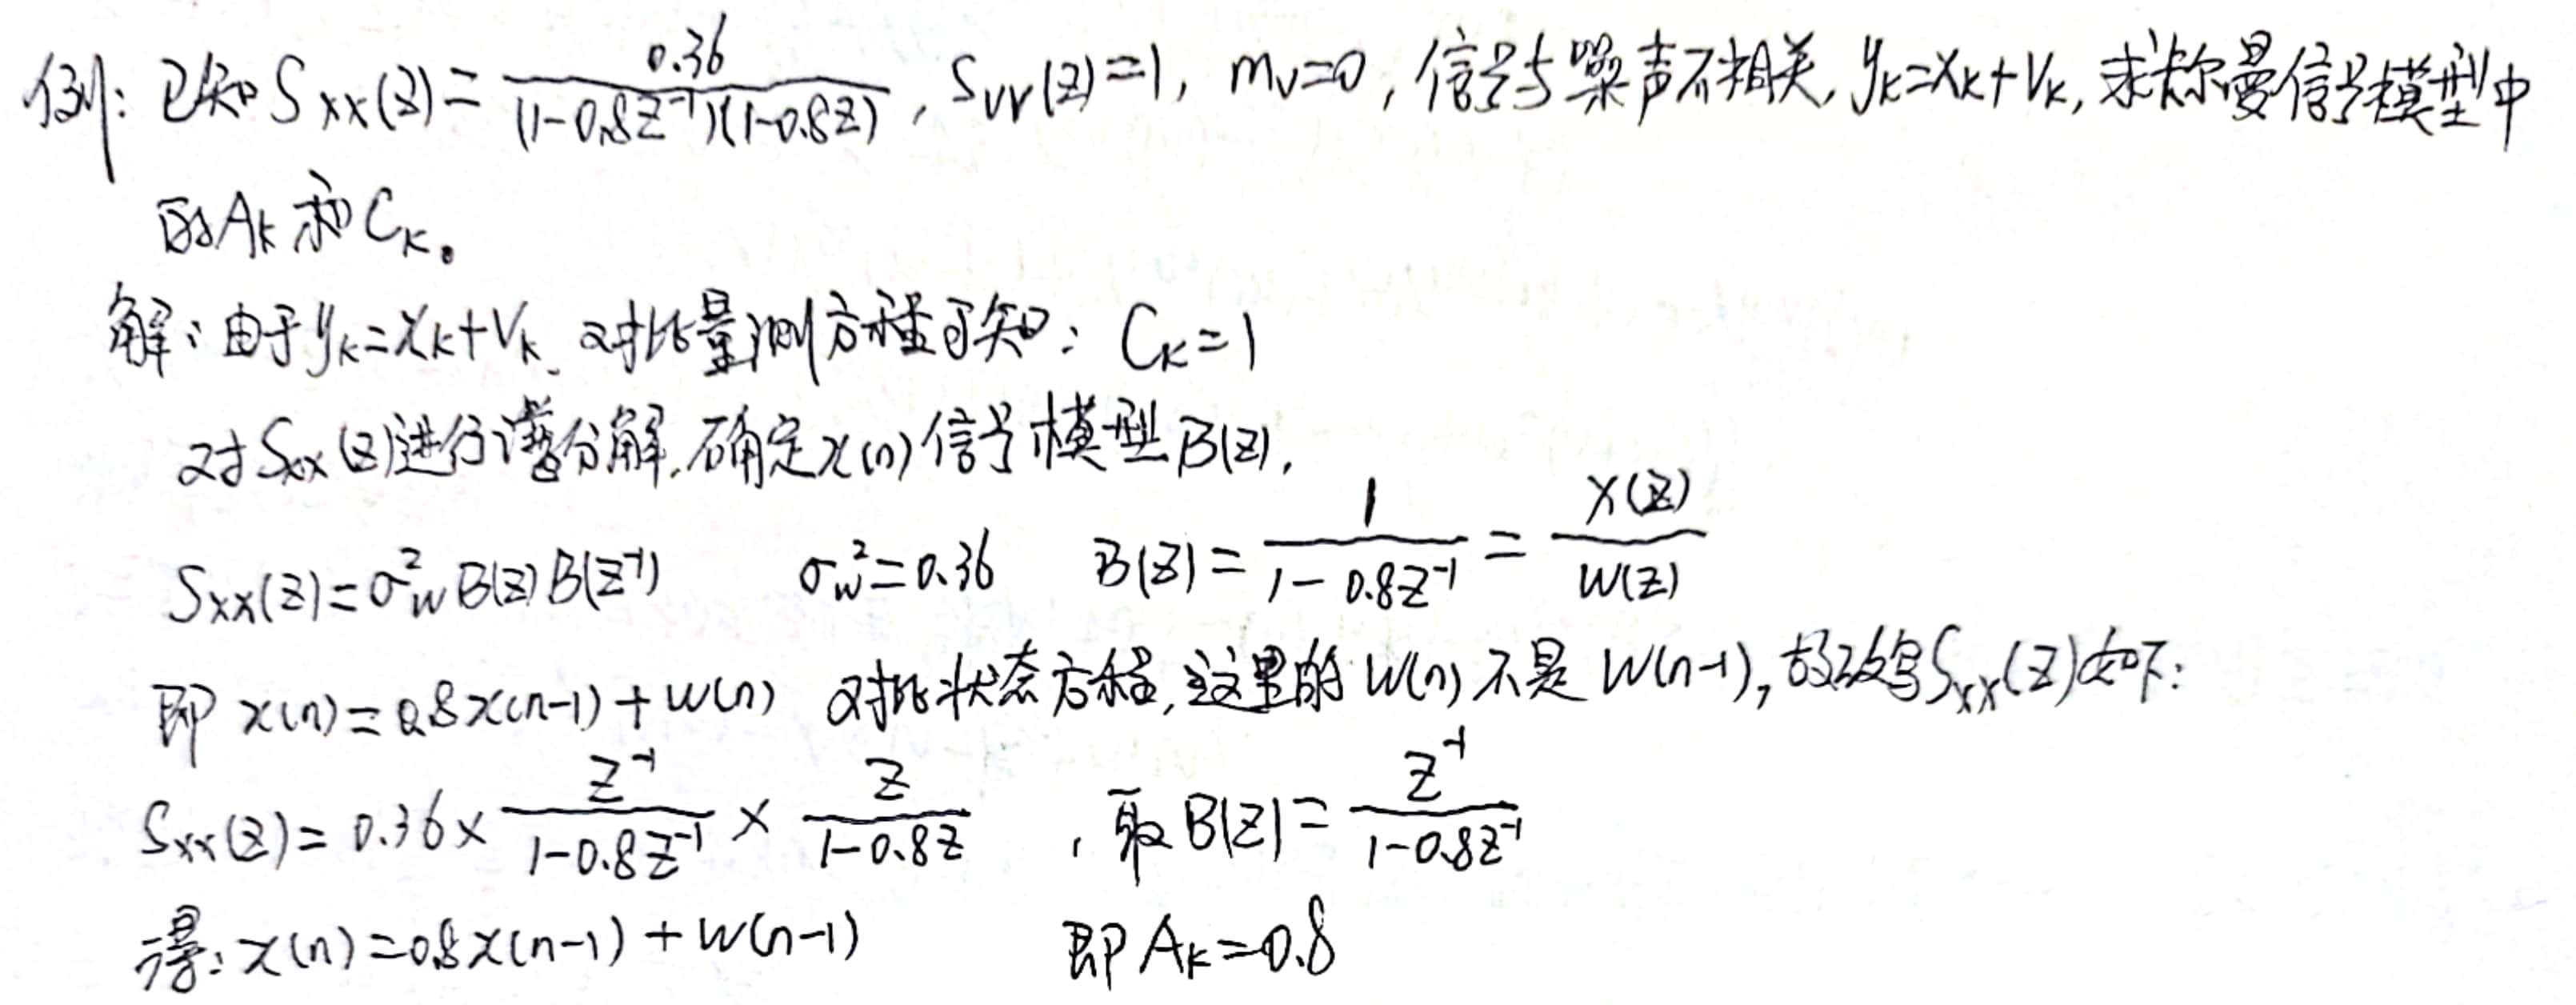 例：已知 Sxx(z)=0.36/((1-0.8z⁻¹)(1-0.8z))，Svv(z)=1，mv=0，信号与噪声不相关，yk=xk+vk，求卡尔曼信号模型中
的Ak和Ck。
解：由于yk=xk+vk，对比量测方程可知：Ck=1
对Sxx(z)进行谱分解，确定x(n)信号模型B(z)，
Sxx(z)=σ²w B(z)B(z⁻¹) σ²w=0.36 B(z)=1/(1-0.8z⁻¹)=X(z)/W(z)
即 x(n)=0.8x(n-1)+w(n) 对比状态方程，这里的W(n)不是W(n-1)，故改写Sxx(z)如下：
Sxx(z)=0.36×z⁻¹/(1-0.8z⁻¹)×z/(1-0.8z) ，取B(z)=z⁻¹/(1-0.8z⁻¹)
得：x(n)=0.8x(n-1)+w(n-1) 即Ak=0.8